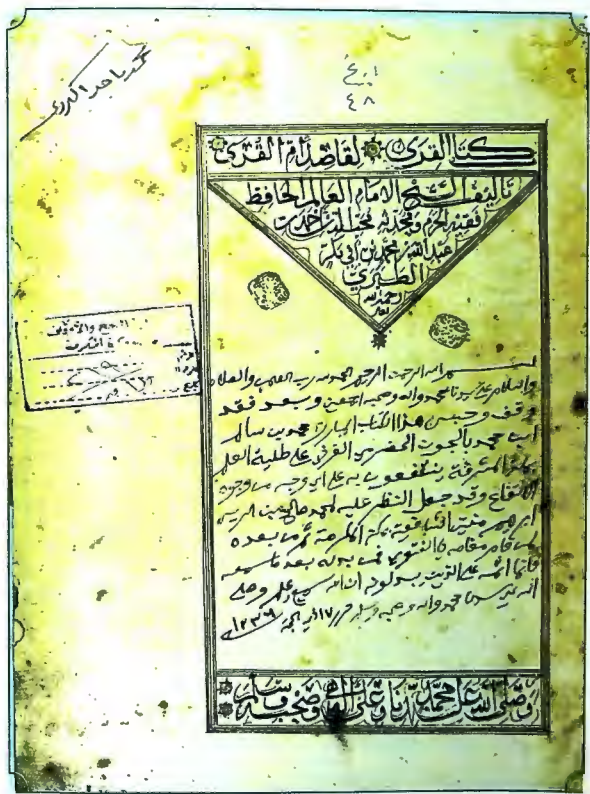 محمد ماجد الكردي
٤٨
كتاب القرى لقاصد أم القرى
تأليف الشيخ الامام العالم الحافظ
فقيه الحرم ومحدثه محب الدين احمد بن
عبد الله بن محمد بن أبي بكر
الطبري
رحمه الله
بسم الله الرحمن الرحيم الحمد لله رب العالمين والصلاة
والسلام على سيدنا محمد واله وصحبه اجمعين وبعد فقد
وقف وحبس هذا الكتاب المبارك محمد بن سالم
ابن محمد باالجون الحضرمي على طلبة العلم
بمكة المشرفة ينتفعون به على اي وجه من وجوه
الانتفاع وقد جعل النظر عليه لمحمد صالح بن الريس
ابراهيم مفتي الشافعية بمكة المكرمة ثم من بعده
لمن قام مقامه بالفتوى فمن بدله بعد ما سمعه
فانما اثمه على الذين يبدلونه ان الله سميع عليم وصلى
الله على سيدنا محمد واله وصحبه وسلم حرر ١٧ ذي الحجة ١٢٣٦
وصلى الله على محمد سيدنا وعلى اله وصحبه وسلم